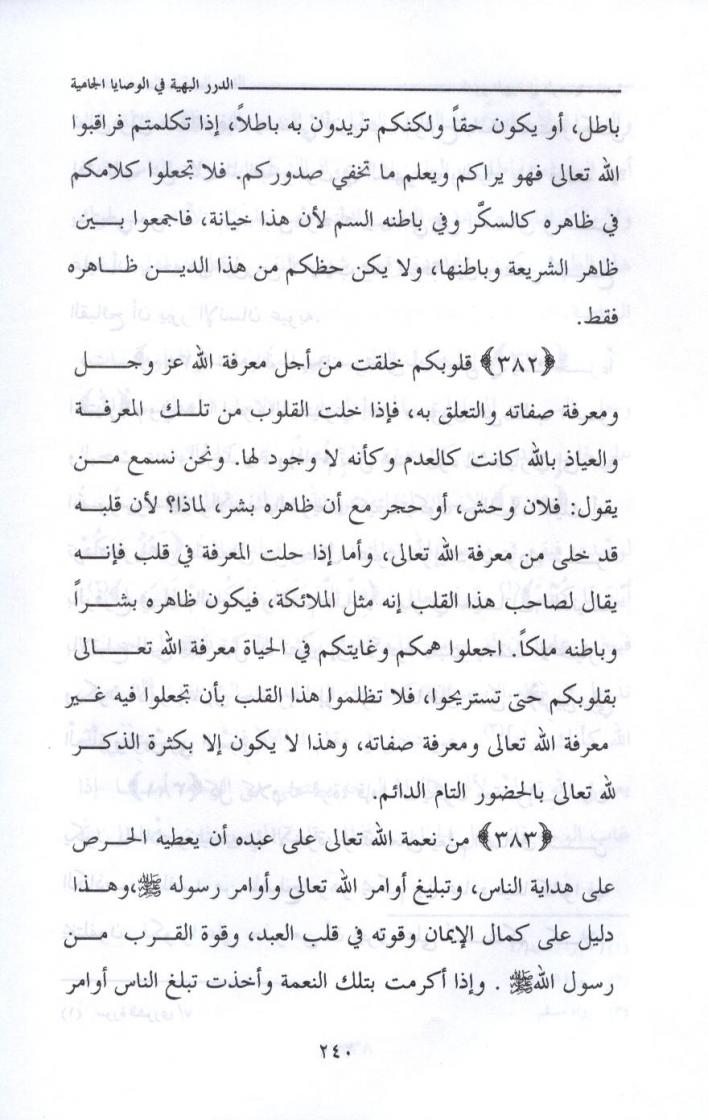 الدرر البهية في الوصايا الجامية
باطل، أو يكون حقاً ولكنكم تريدون به باطلاً، إذا تكلمتم فراقبوا
الله تعالى فهو يراكم ويعلم ما تخفي صدوركم. فلا تجعلوا كلامكم
في ظاهره كالسكَّر وفي باطنه السم لأن هذا خيانة، فاجمعوا بين
ظاهر الشريعة وباطنها، ولا يكن حظكم من هذا الدين ظاهره
فقط.
﴿٣٨٢﴾ قلوبكم خلقت من أجل معرفة الله عز وجل
ومعرفة صفاته والتعلق به، فإذا خلت القلوب من تلك المعرفة
والعياذ بالله كانت كالعدم وكأنه لا وجود لها. ونحن نسمع من
يقول: فلان وحش، أو حجر مع أن ظاهره بشر، لماذا؟ لأن قلبه
قد خلى من معرفة الله تعالى، وأما إذا حلت المعرفة في قلب فإنه
يقال لصاحب هذا القلب إنه مثل الملائكة، فيكون ظاهره بشراً
وباطنه ملكاً. اجعلوا همكم وغايتكم في الحياة معرفة الله تعالى
بقلوبكم حتى تستريحوا، فلا تظلموا هذا القلب بأن تجعلوا فيه غير
معرفة الله تعالى ومعرفة صفاته، وهذا لا يكون إلا بكثرة الذكر
لله تعالى بالحضور التام الدائم.
﴿٣٨٣﴾ من نعمة الله تعالى على عبده أن يعطيه الحرص
على هداية الناس، وتبليغ أوامر الله تعالى وأوامر رسوله ﷺ،وهذا
دليل على كمال الإيمان وقوته في قلب العبد، وقوة القرب من
رسول الله ﷺ . وإذا أكرمت بتلك النعمة وأخذت تبلغ الناس أوامر
٢٤٠